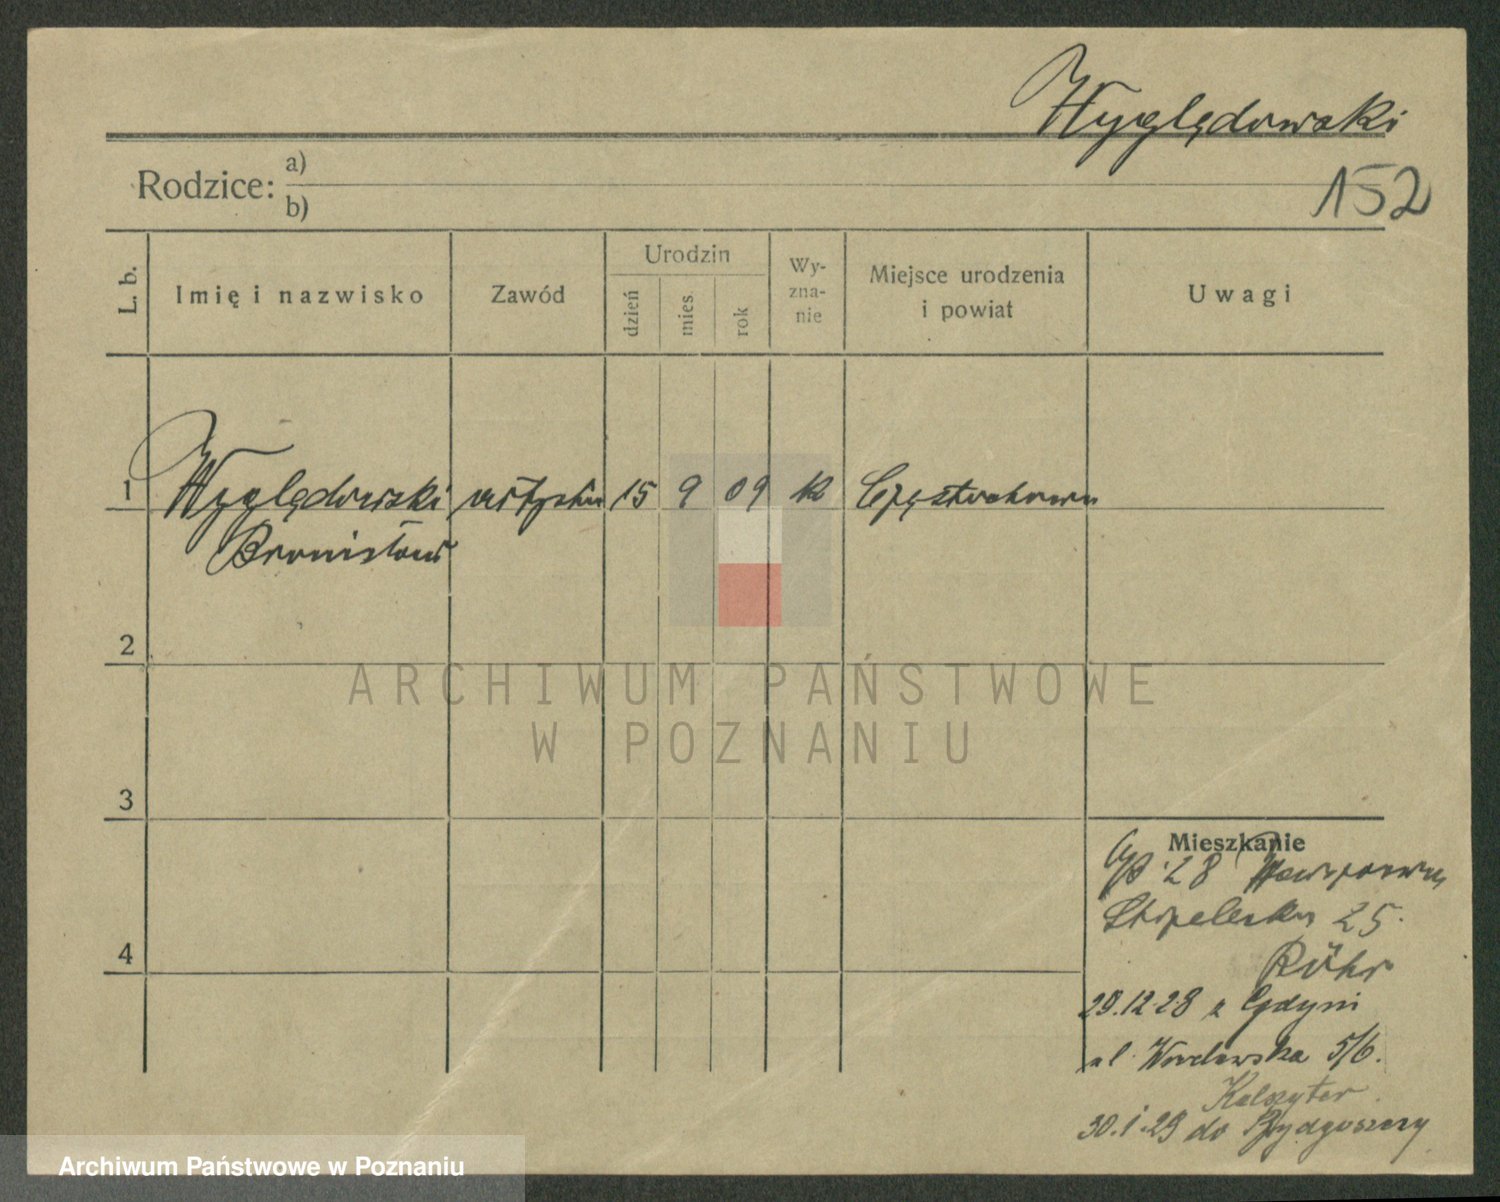 Wyględowski
152
Rodzice: a)
b)
L. b. Imię i nazwisko Zawód Urodzin dzień mies. rok Wy-zna-nie Miejsce urodzenia i powiat Uwagi
1 Wyględowski artysta 15 9 09 k Częstochowa
Bronisław
2
3
4
Mieszkanie
28
Strzelecka 25.
Röhr
29.12.28 z Gdyni
ul. 5/6.
30.1.29 do Bydgoszczy
ARCHIWUM PAŃSTWOWE
W POZNANIU
Archiwum Państwowe w Poznaniu